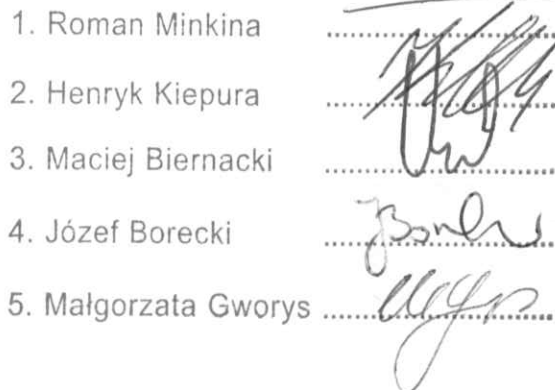 1. Roman Minkina ..............................
2. Henryk Kiepura ..............................
3. Maciej Biernacki ..............................
4. Józef Borecki ..............................
5. Małgorzata Gworys ..............................